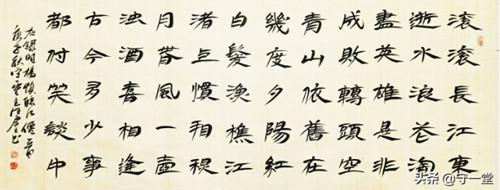 滾滾長江東
逝水浪花淘
盡英雄是非
成敗轉頭空
青山依舊在
幾度夕陽紅
白髮漁樵江
渚上慣看秋
月春風一壺
濁酒喜相逢
古今多少事
都付笑談中
右錄明楊慎臨江仙一首
庚子秋守一堂
头条@守一堂